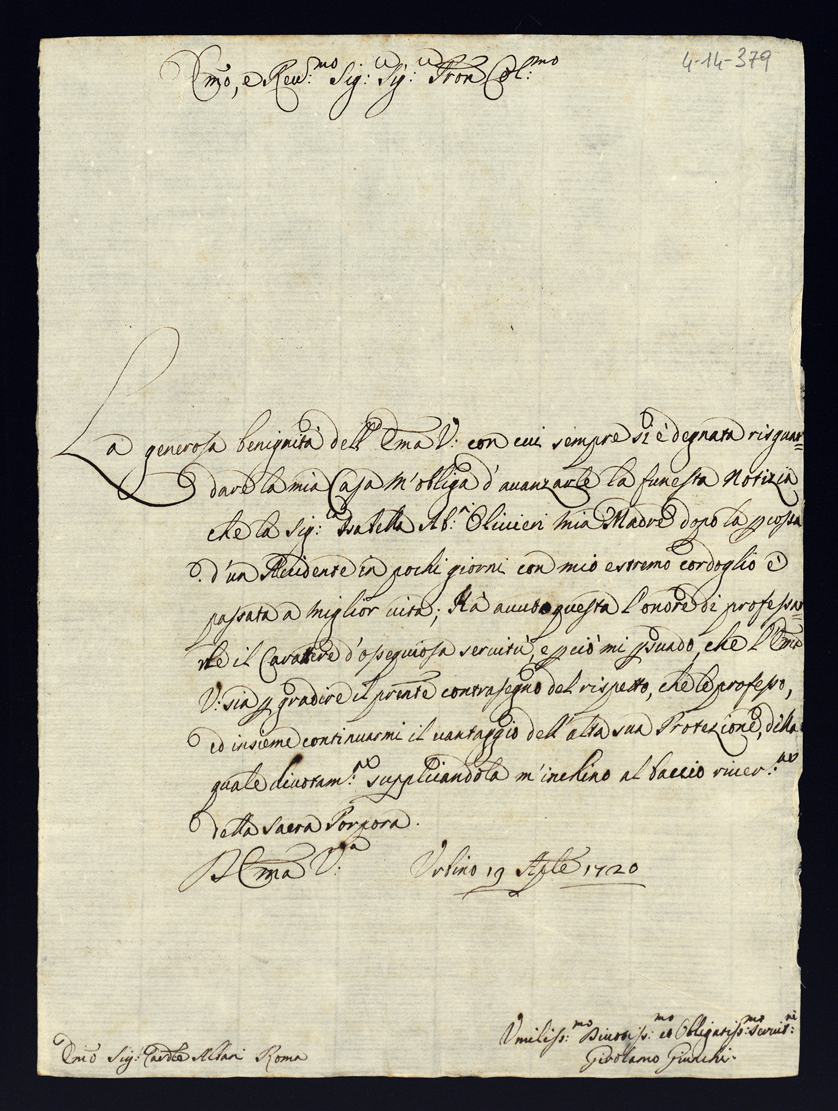 4-14-379
Emo, e Reu:mo Sig: Sig: Pron Col:mo
La generosa benignità dell' Ema V: con cui sempre si è degnata risguar=
dare la mia Casa m'obliga d'auanzarle la funesta notizia
che la Sig:ra Isabella Ab: Oliuieri mia Madre dopo la
d'un Accidente in pochi giorni con mio estremo cordoglio è
passata a miglior uita; Hà auuto questa l'onore di professar=
le il Carattere d'ossequiosa seruitù, e pciò mi psuado, che l'Ema
V: sia p gradire il pnte contrasegno del rispetto, che le professo,
ed insieme continuarmi il uantaggio dell'alta sua Protezione, della
quale diuotam:te supplicandola m'inchino al baccio riuer:
della Sacra Porpora.
D Ema V:ra Urbino 19 Aple 1720
Umiliss:mo Diuotiss:mo ed Obligatiss:mo Seruit:
Girolamo Giunchi
Emo Sig: Cardle Albani Roma